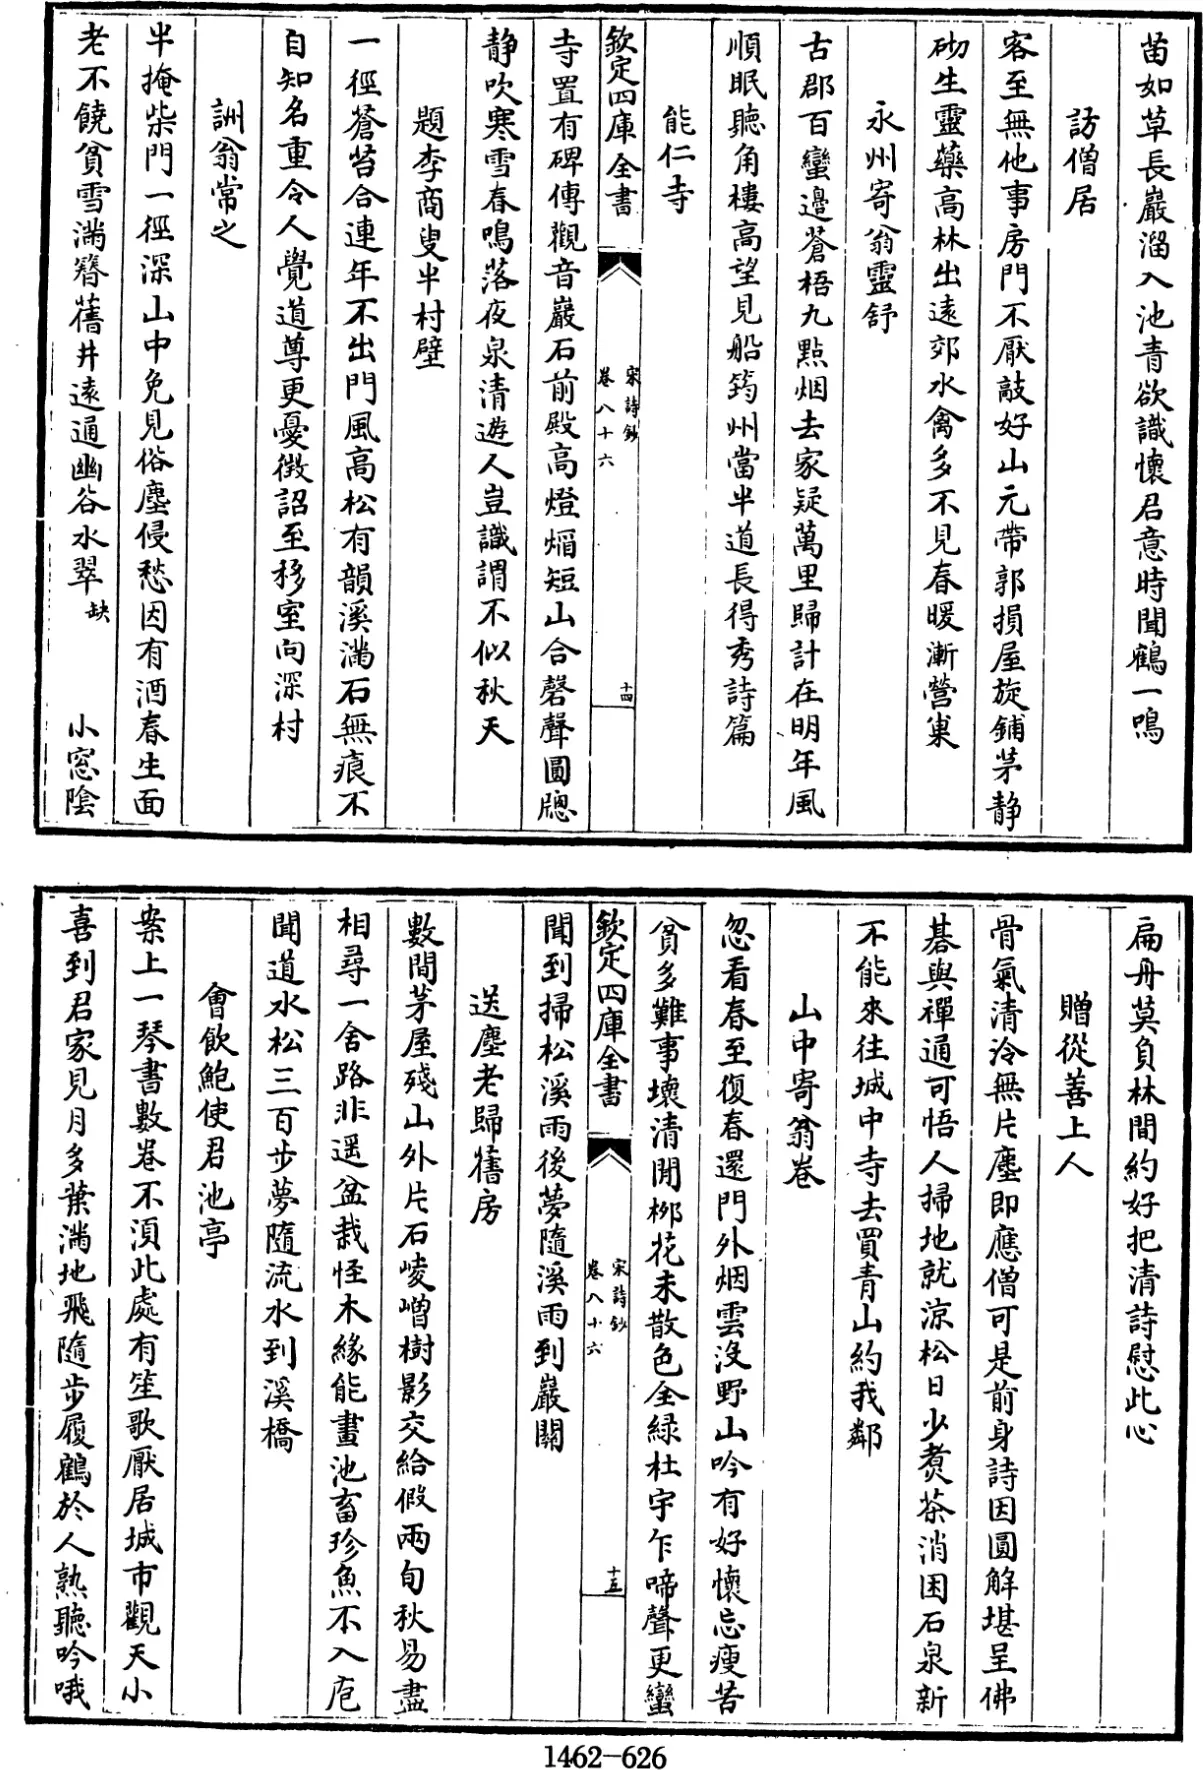 苗如草長巖溜入池青欲識懷君意時聞鶴一鳴
訪僧居
客至無他事房門不厭敲好山元帶郭損屋旋鋪茅静
砌生靈藥高林出逺郊水禽多不見春暖漸營巢
永州寄翁靈舒
古郡百蠻邉蒼梧九點烟去家疑萬里歸計在明年風
順眠聽角樓高望見船筠州當半道長得秀詩篇
能仁寺
寺置有碑傳觀音巖石前殿高燈熖短山合磬聲圓牕
静吹寒雪春鳴落夜泉清遊人豈識謂不似秋天
題李商叟半村壁
一徑蒼苔合連年不出門風高松有韻溪滿石無痕不
自知名重令人覺道尊更憂徴詔至移室向深村
詶翁常之
半掩柴門一徑深山中免見俗塵侵愁因有酒春生面
老不饒貧雪滿簪舊井逺通幽谷水翠缺 小窓陰
欽定四庫全書
宋詩鈔
卷八十六
十四
扁舟莫負林間約好把清詩慰此心
贈從善上人
骨氣清泠無片塵即應僧可是前身詩因圓解堪呈佛
碁與禪通可悟人掃地就涼松日少煑茶消困石泉新
不能來往城中寺去買青山約我鄰
山中寄翁卷
忽看春至復春還門外烟雲沒野山吟有好懷忘瘦苦
貧多難事壞清閒栁花未散色全緑杜宇乍啼聲更蠻
聞到掃松溪雨後夢隨溪雨到巖關
送塵老歸舊房
數間茅屋殘山外片石崚嶒樹影交給假兩旬秋易盡
相尋一舍路非遥盆栽怪木緣能畫池畜珍魚不入庖
聞道水松三百步夢隨流水到溪橋
會飲鮑使君池亭
案上一琴書數卷不須此處有笙歌厭居城市觀天小
喜到君家見月多葉滿地飛隨步履鶴於人熟聽吟哦
欽定四庫全書
宋詩鈔
卷八十六
十五
1462-626